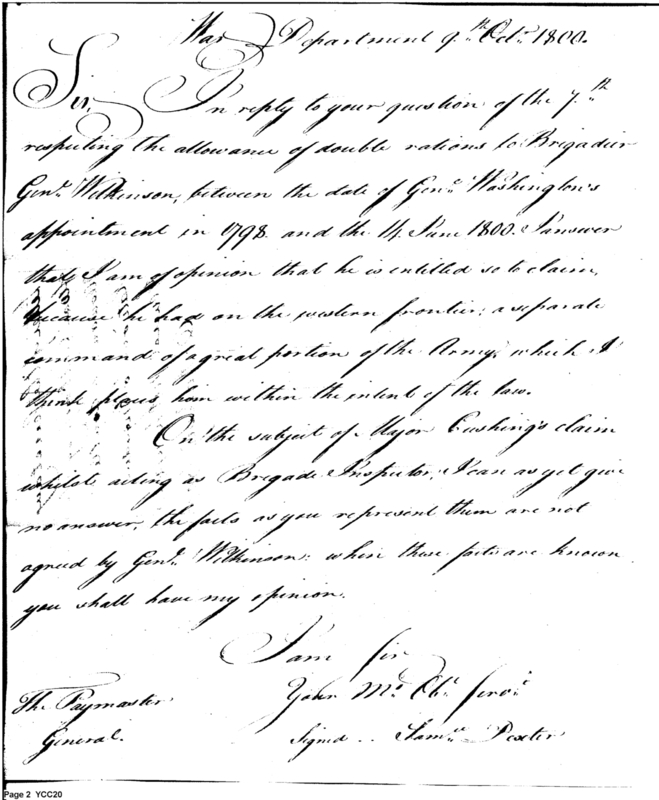 War Department 9.th Oct.r 1800.
Sir, In reply to your question of the 7.th
respecting the allowance of double rations to Brigadier
Gen.l Wilkinson, between the date of Gen.l Washington's
appointment in 1798 and the 14 June 1800. I answer
that I am of opinion that he is entitled so to claim,
because he had on the western frontier; a separate
command of a great portion of the Army, which I
think places him within the intent of the law.
On the subject of Major Cushing's claim
whilst acting as Brigade Inspector, I can as yet give
no answer, the facts as you represent them are not
agreed by Gen.l Wilkinson: when those facts are known
you shall have my opinion.
I am Sir
Your Mo. Ob.t Serv.t
The Paymaster
General.
Signed .. Sam.l Dexter
Page 2 YCC20